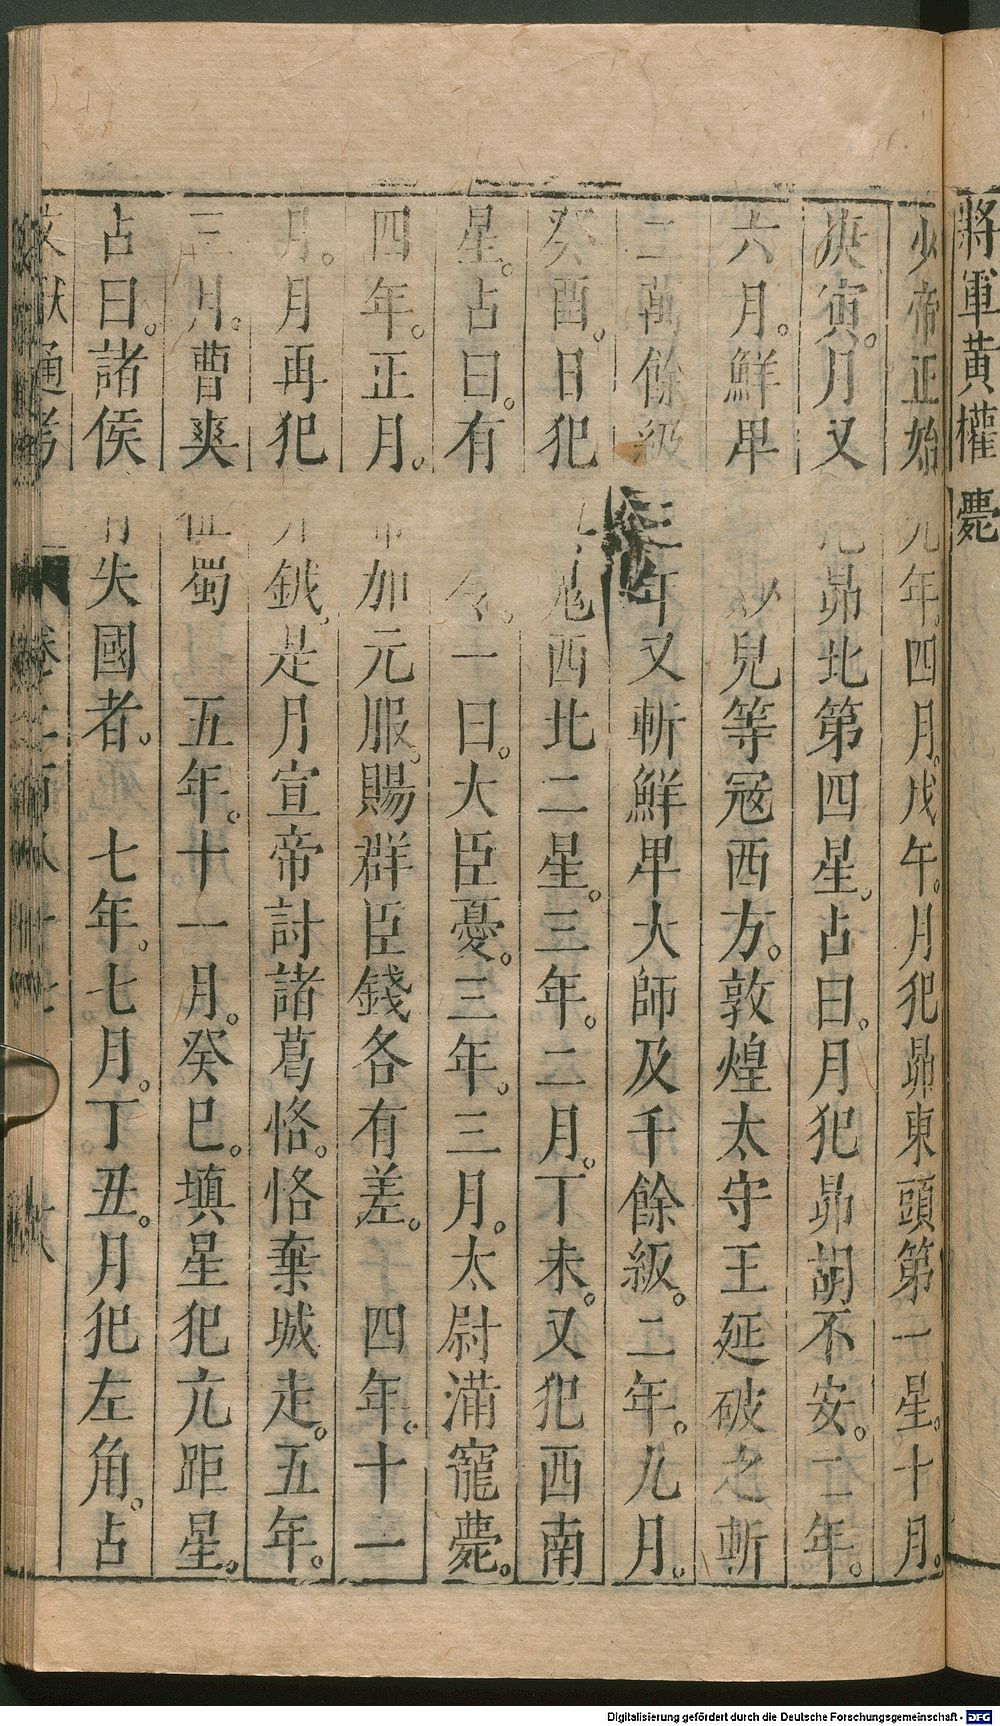 將軍黄權薨
少帝正始元年。四月。戊午。月犯昴東頭第一星。十月。
庚寅。月又犯昴北第四星。占曰。月犯昴胡不安。二年。
六月。鮮卑 兒等寇西方。敦煌太守王延破之斬
二萬餘級 年又斬鮮卑大師及千餘級。二年。九月。
癸酉。日犯 鬼西北二星。三年。二月。丁未。又犯西南
星。占曰。有 令。一曰。大臣憂。三年。三月。太尉滿寵薨。
四年。正月。 加元服。賜群臣錢各有差。 四年。十一
月。月再犯井鉞。是月宣帝討諸葛恪。恪棄城走。五年。
三月。曹爽征蜀 五年。十一月。癸巳。填星犯亢距星。
占曰。諸侯有失國者。 七年。七月。丁丑。月犯左角。占
文獻通考 卷二百八十七
Digitalisierung gefördert durch die Deutsche Forschungsgemeinschaft - DFG